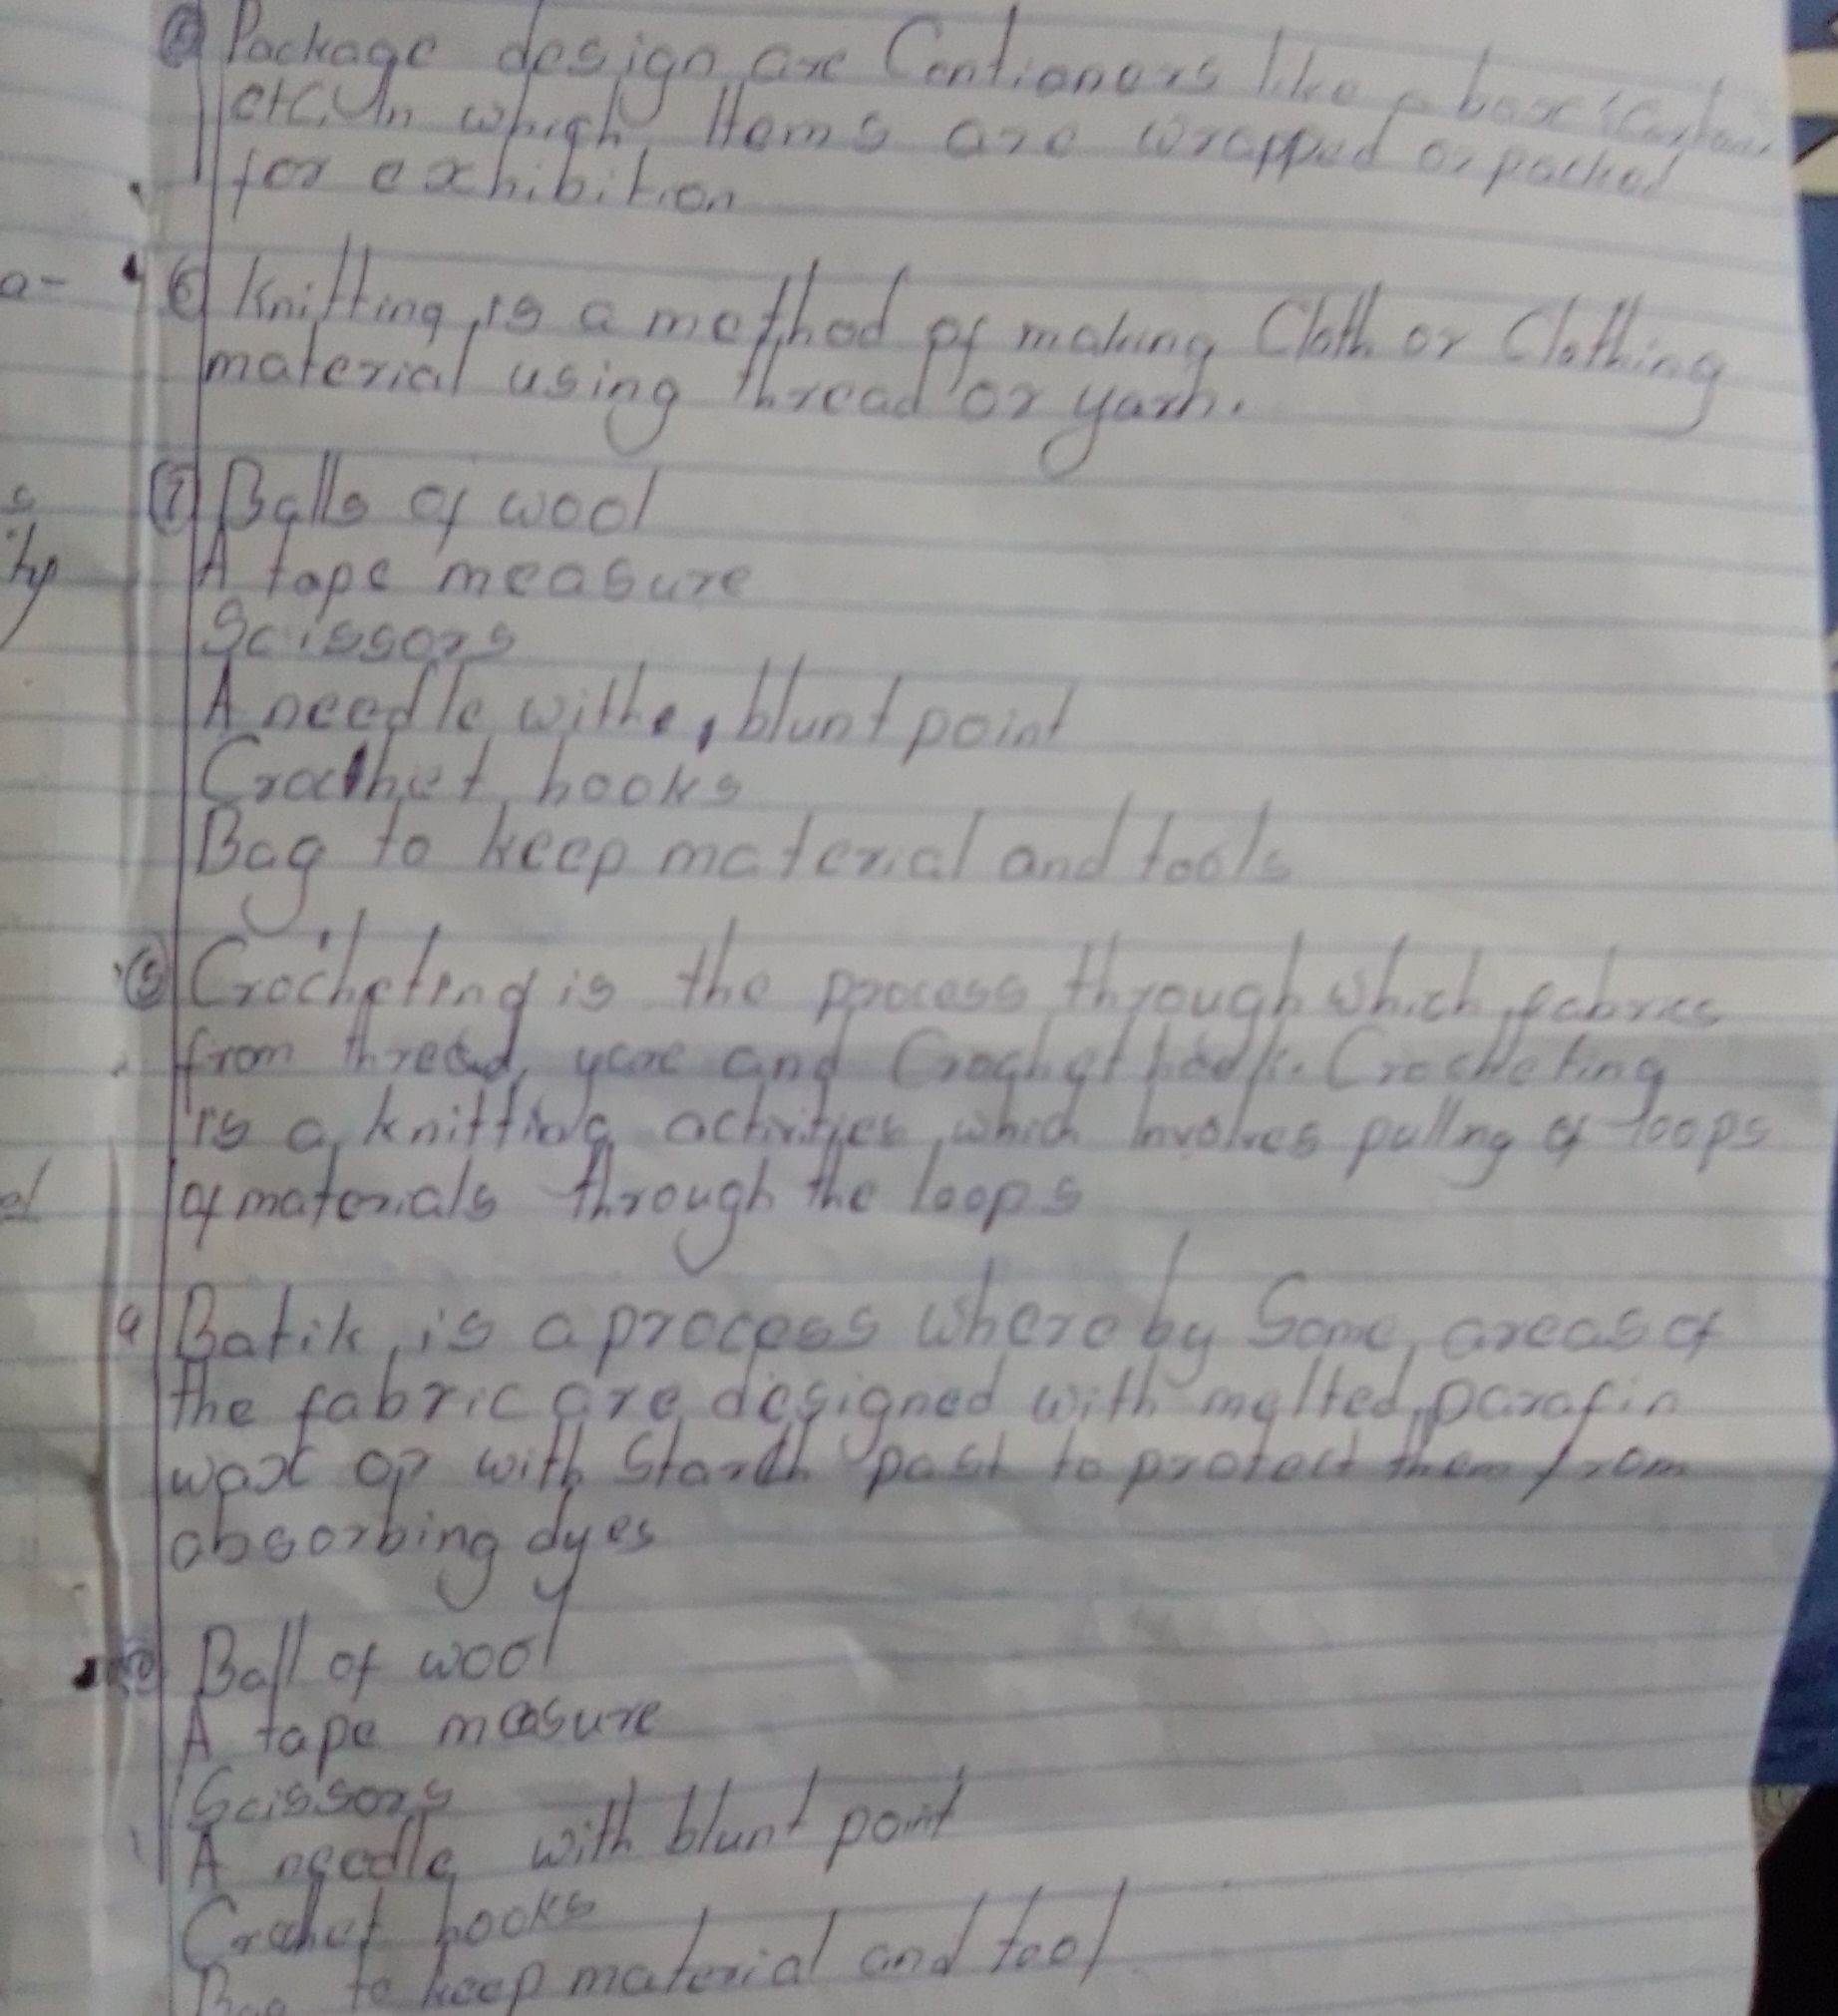 ⑤ Package design are Contianers like a boxe
etc. In which Items are wrapped or packed
for exhibition
a-
⑥ Knitting is a method of making Cloth or Clothing
material using thread or yarn.
⑦ Balls of wool
A tape measure
Scissors
A needle withe, blunt point
Crochet hooks
Bag to keep material and tools
⑧ Crocheting is the process through which fabrics
from thread, yare and Crochet hook. Crocheting
is a knitting activities which Involves pulling of loops
of materials through the loops
9 Batik is a process where by Some areas of
the fabric are designed with melted parafin
wax or with Starch past to protect them from
absorbing dyes
10 Ball of wool
A tape measure
Scissors
A needle with blunt point
Crochet hooks
Bag to keep material and tool